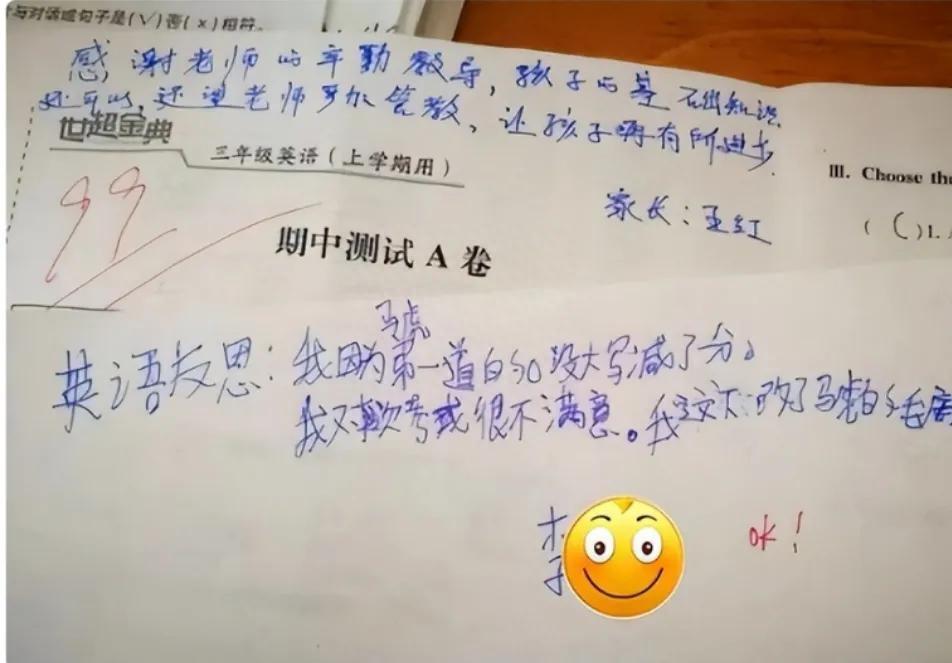 与对话或句子是(√)否(×)相符。
感谢老师的辛勤教导，孩子的基础知识
还可以，还望老师多加管教，让孩子再有所进步.
世超金典
三年级英语（上学期用）
99
家长：王红
III. Choose the
( C )1.
期中测试 A 卷
马虎
英语反思：我因为第一道的so没大写减了分。
我对这次考试很不满意。我这次一定改了马虎的毛病
李
ok！